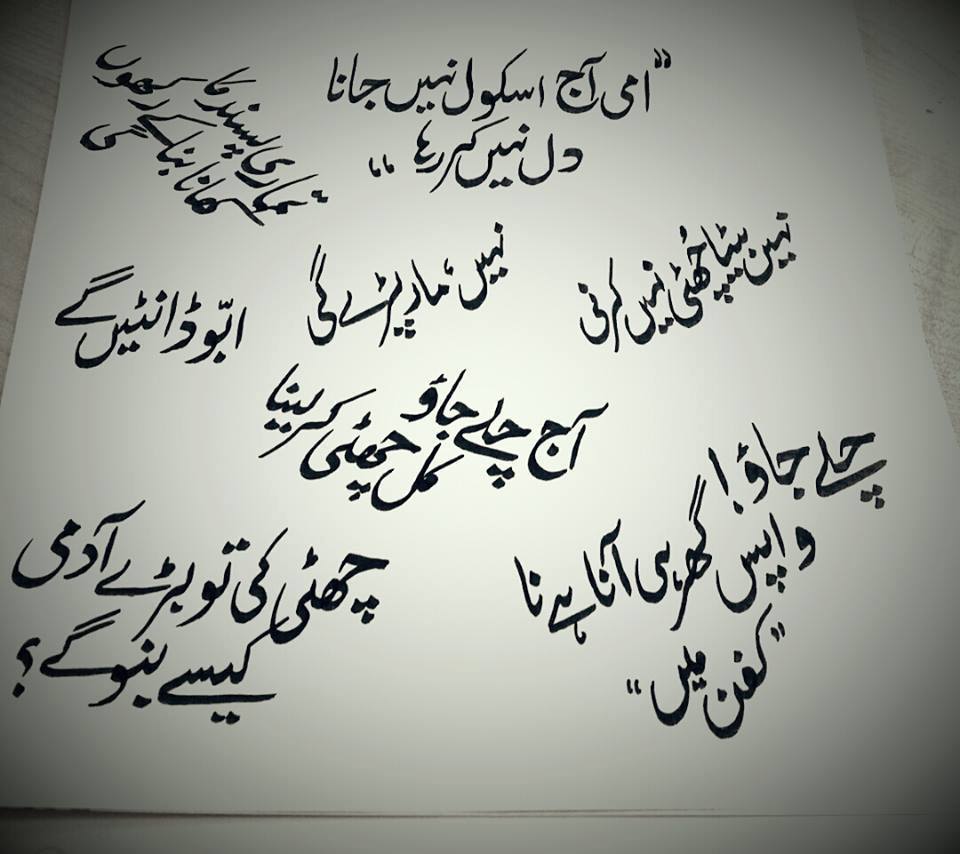 ”امی آج اسکول نہیں جانا
دل نہیں کر رہا “
تمہاری پسند کا
کھانا بنا کے رکھوں
گی
نہیں بیٹا چُھٹی نہیں کرنی
نہیں، مار پڑے گی
ابّو ڈانٹیں گے
آج چلے جاؤ
کل چھٹی کر لینا
چلے جاؤ!
واپس گھر ہی آنا ہے نا
”کفن میں“
چھٹی کی تو بڑے آدمی
کیسے بنو گے؟